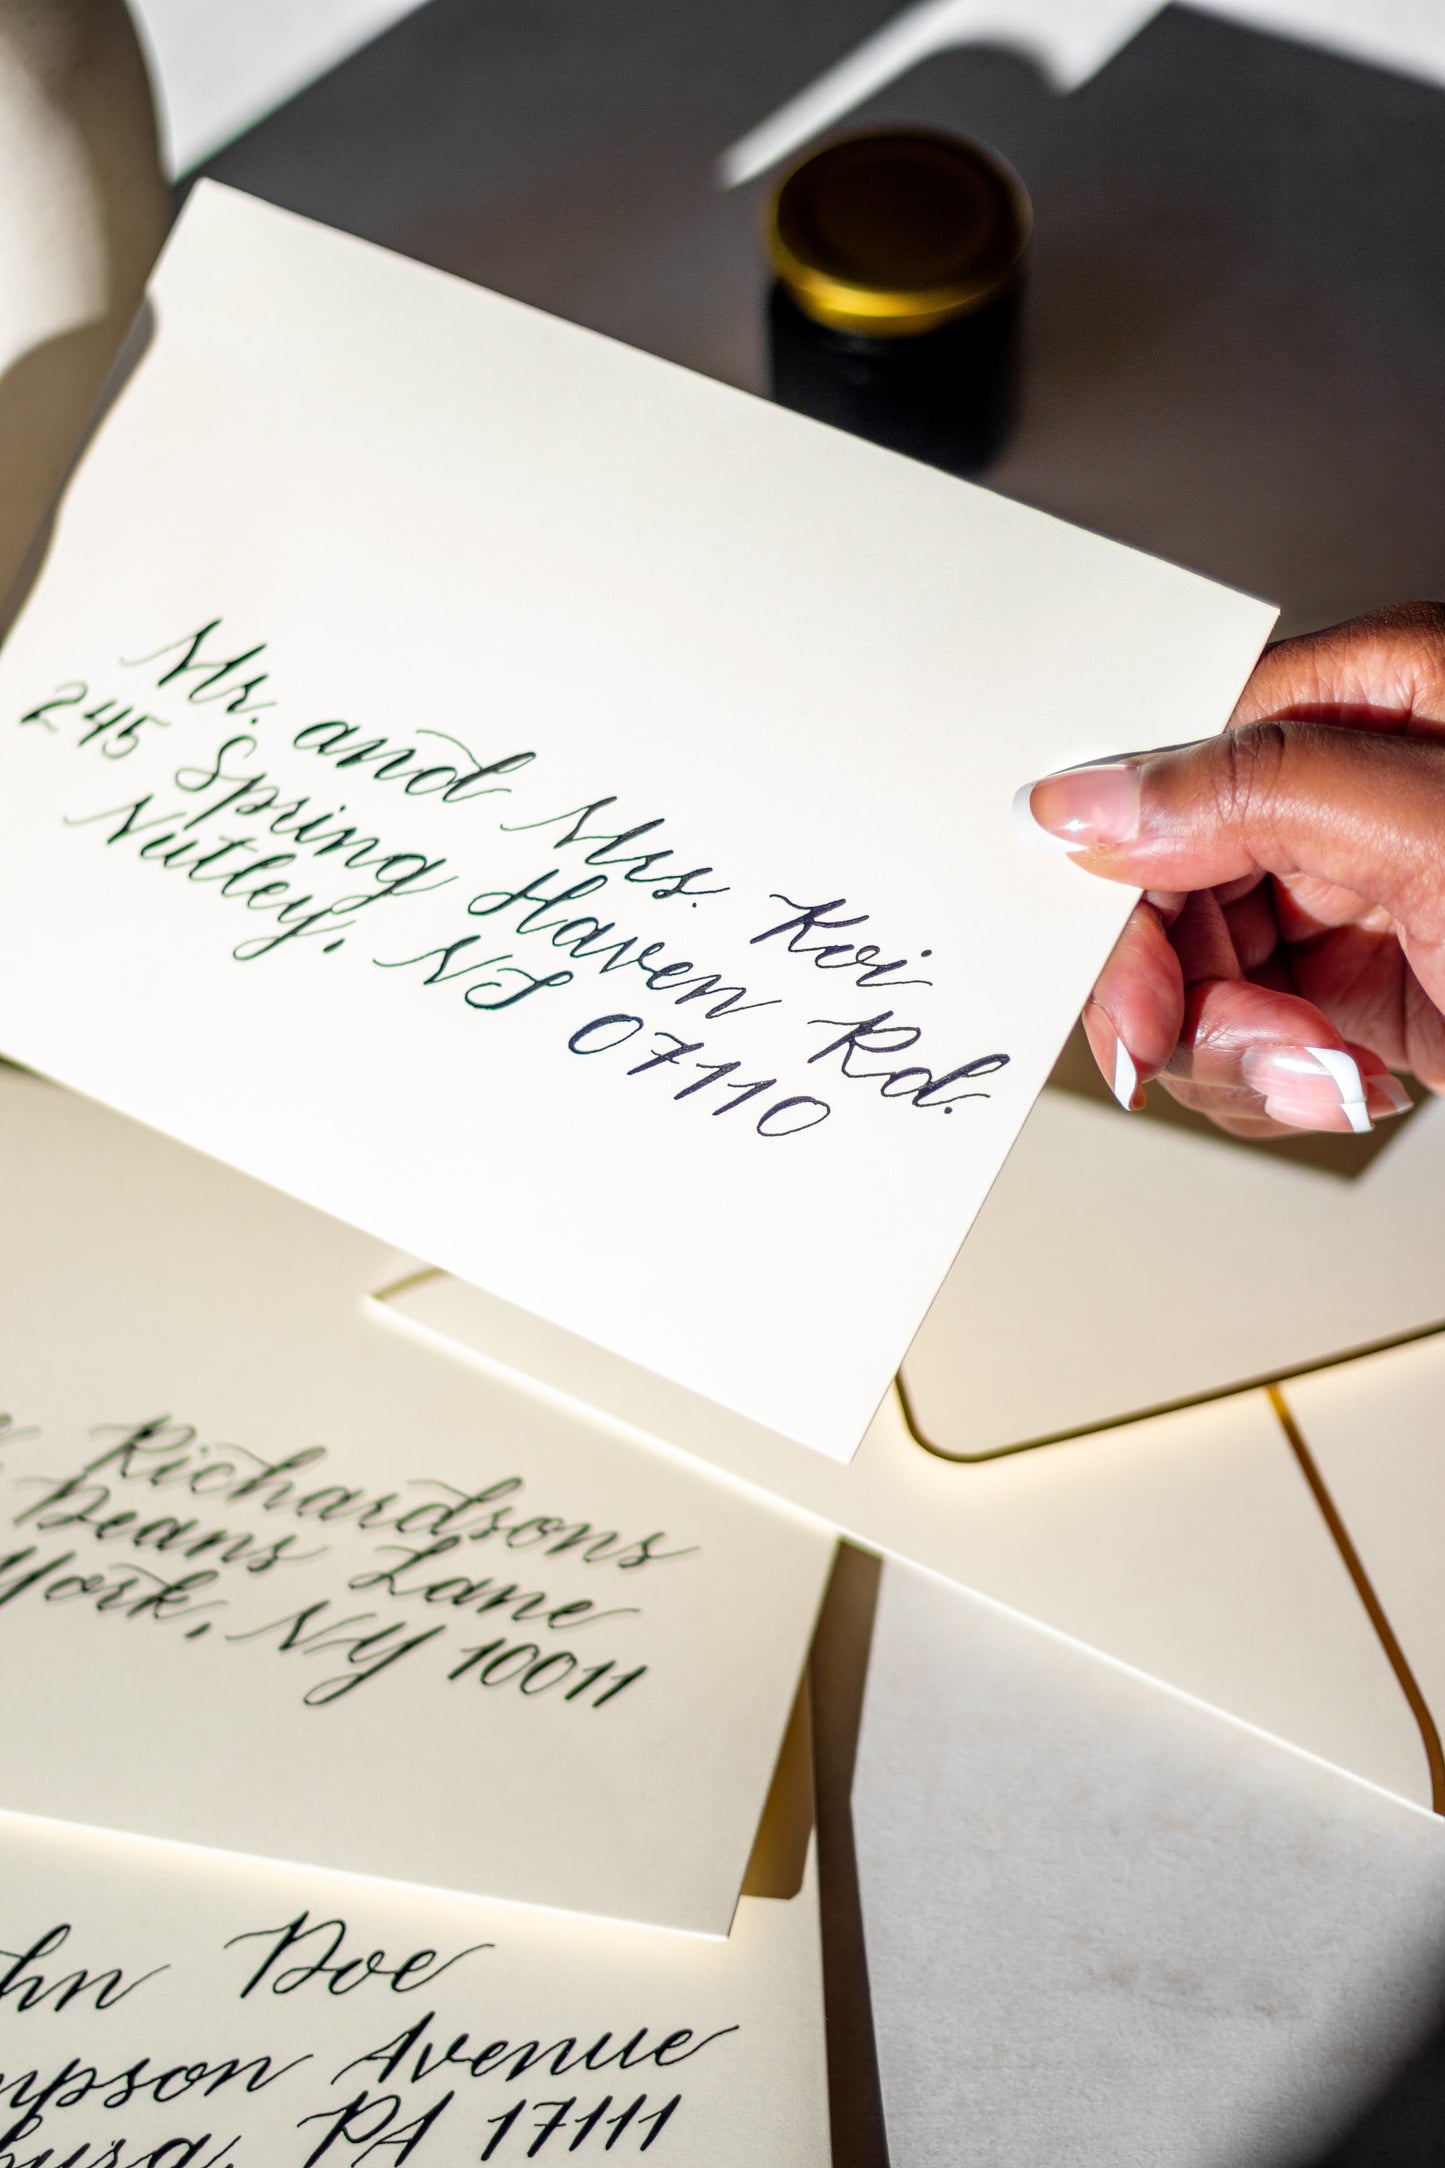 Mr. and Mrs. Koi
245 Spring Haven Rd.
Nutley, NJ 07110
Richardsons
Deans Lane
York, NY 10011
hn Doe
mpson Avenue
burg, PA 17111